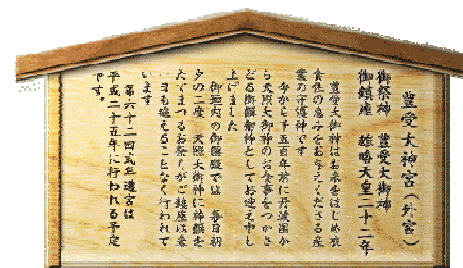 豊受大神宮(外宮)
御祭神 豊受大御神
御鎮座 雄略天皇二十二年
豊受大御神はお米をはじめ衣
食住の恵みをお与えくださる産
業の守護神です
今から千五百年前に丹波国か
ら天照大御神のお食事をつかさ
どる御饌都神としてお迎え申し
上げました
御垣内の御饌殿では 毎日朝
夕の二度 天照大御神に神饌を
たてまつるお祭りがご鎮座以来
一日も絶えることなく行われて
います
第六十二回式年遷宮は
平成二十五年に行われる予定
です。